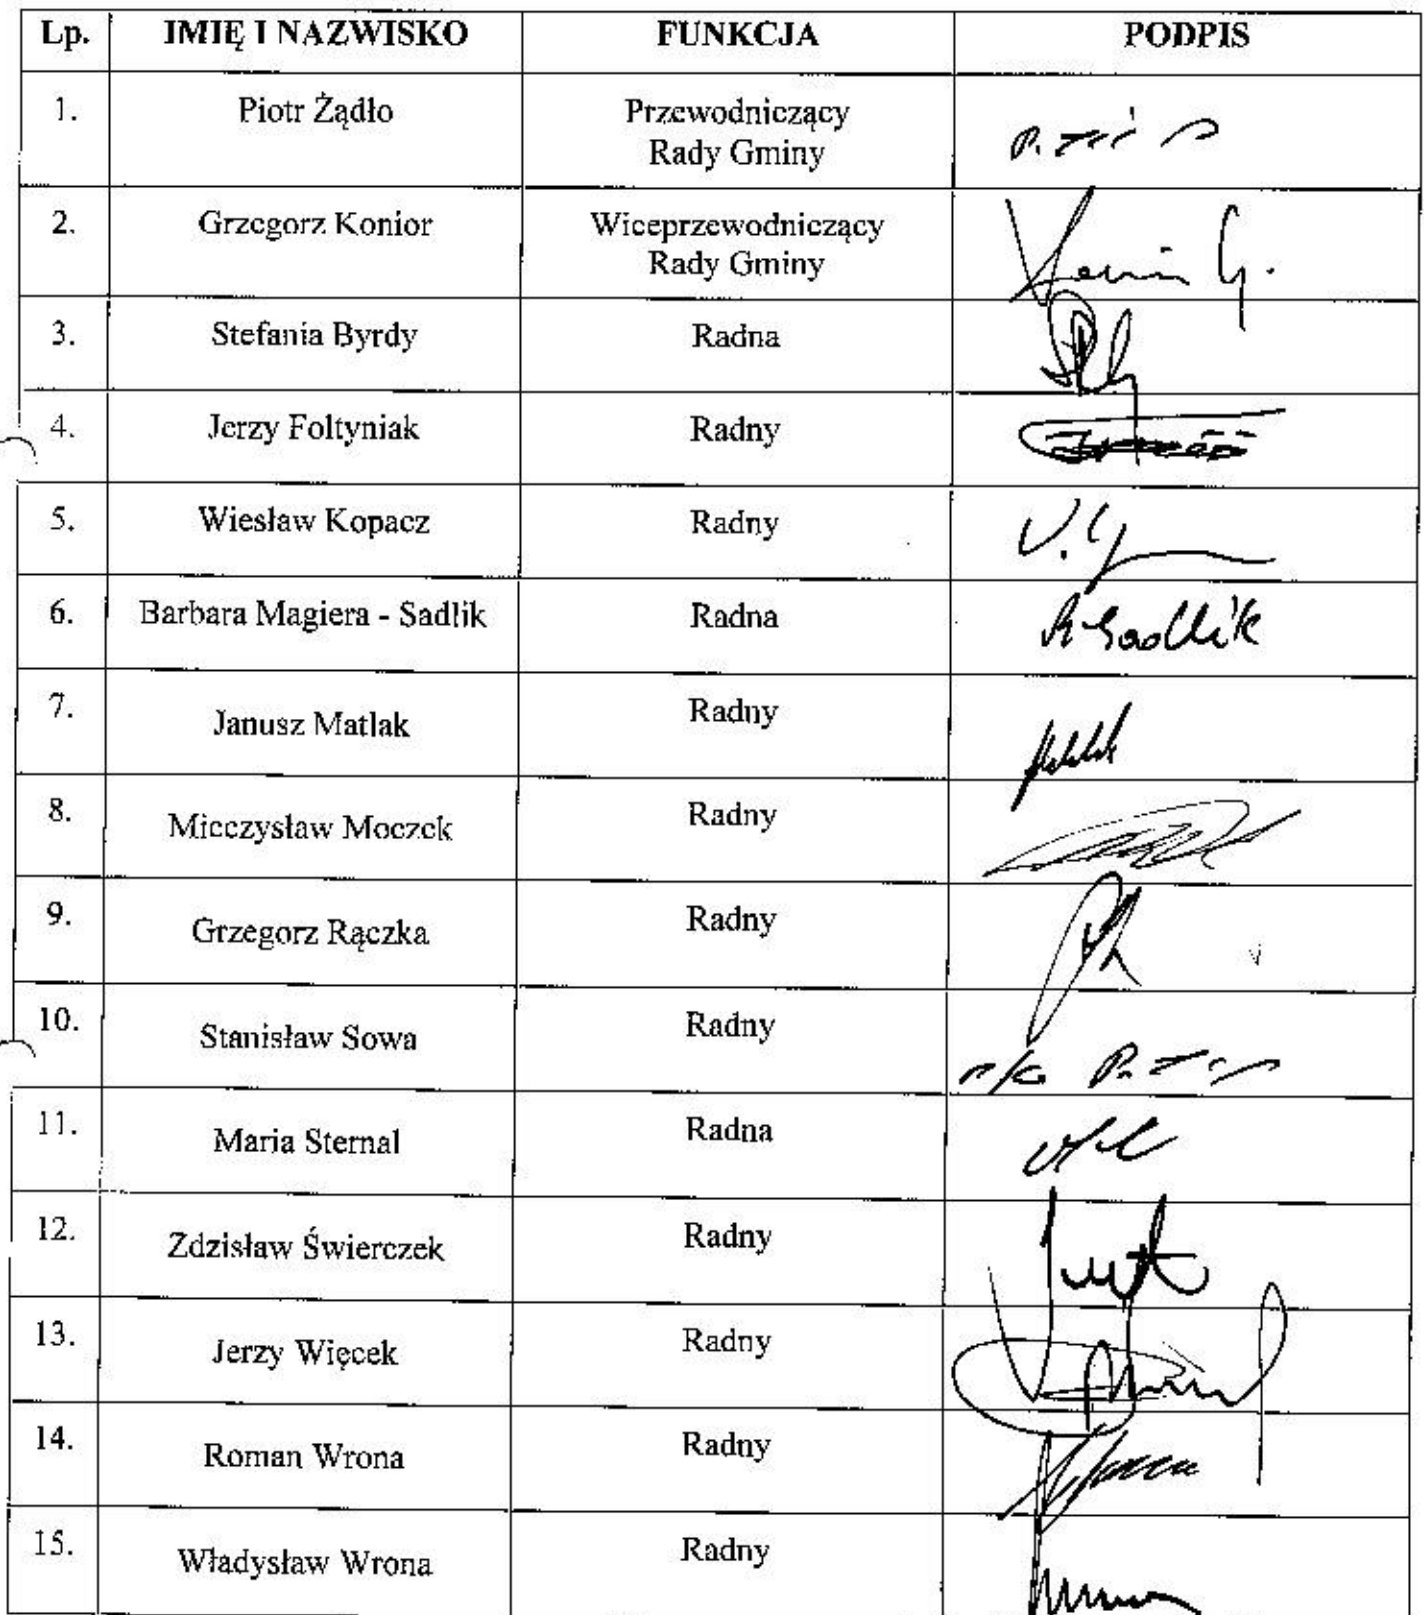 Lp. IMIĘ I NAZWISKO FUNKCJA PODPIS
1. Piotr Żądło Przewodniczący
Rady Gminy
2. Grzegorz Konior Wiceprzewodniczący
Rady Gminy
3. Stefania Byrdy Radna
4. Jerzy Foltyniak Radny
5. Wiesław Kopacz Radny
6. Barbara Magiera - Sadlik Radna
7. Janusz Matlak Radny
8. Mieczysław Moczek Radny
9. Grzegorz Rączka Radny
10. Stanisław Sowa Radny
11. Maria Sternal Radna
12. Zdzisław Świerczek Radny
13. Jerzy Więcek Radny
14. Roman Wrona Radny
15. Władysław Wrona Radny